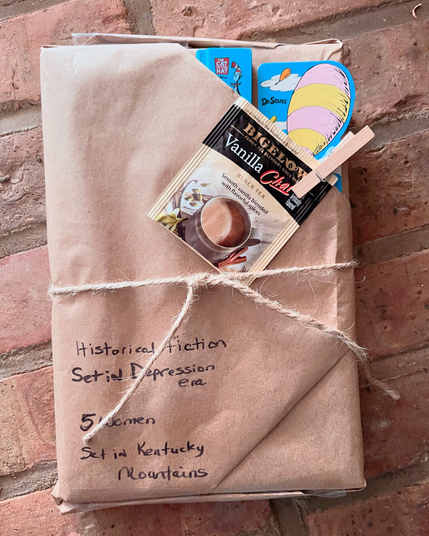 THE
CAT
HAT
Dr. Seuss
BIGELOW
Vanilla
Chai
BLACK TEA
Smooth vanilla blended
with flavorful spices
Historical fiction
Set in Depression
era
5 Women
Set in Kentucky
Mountains